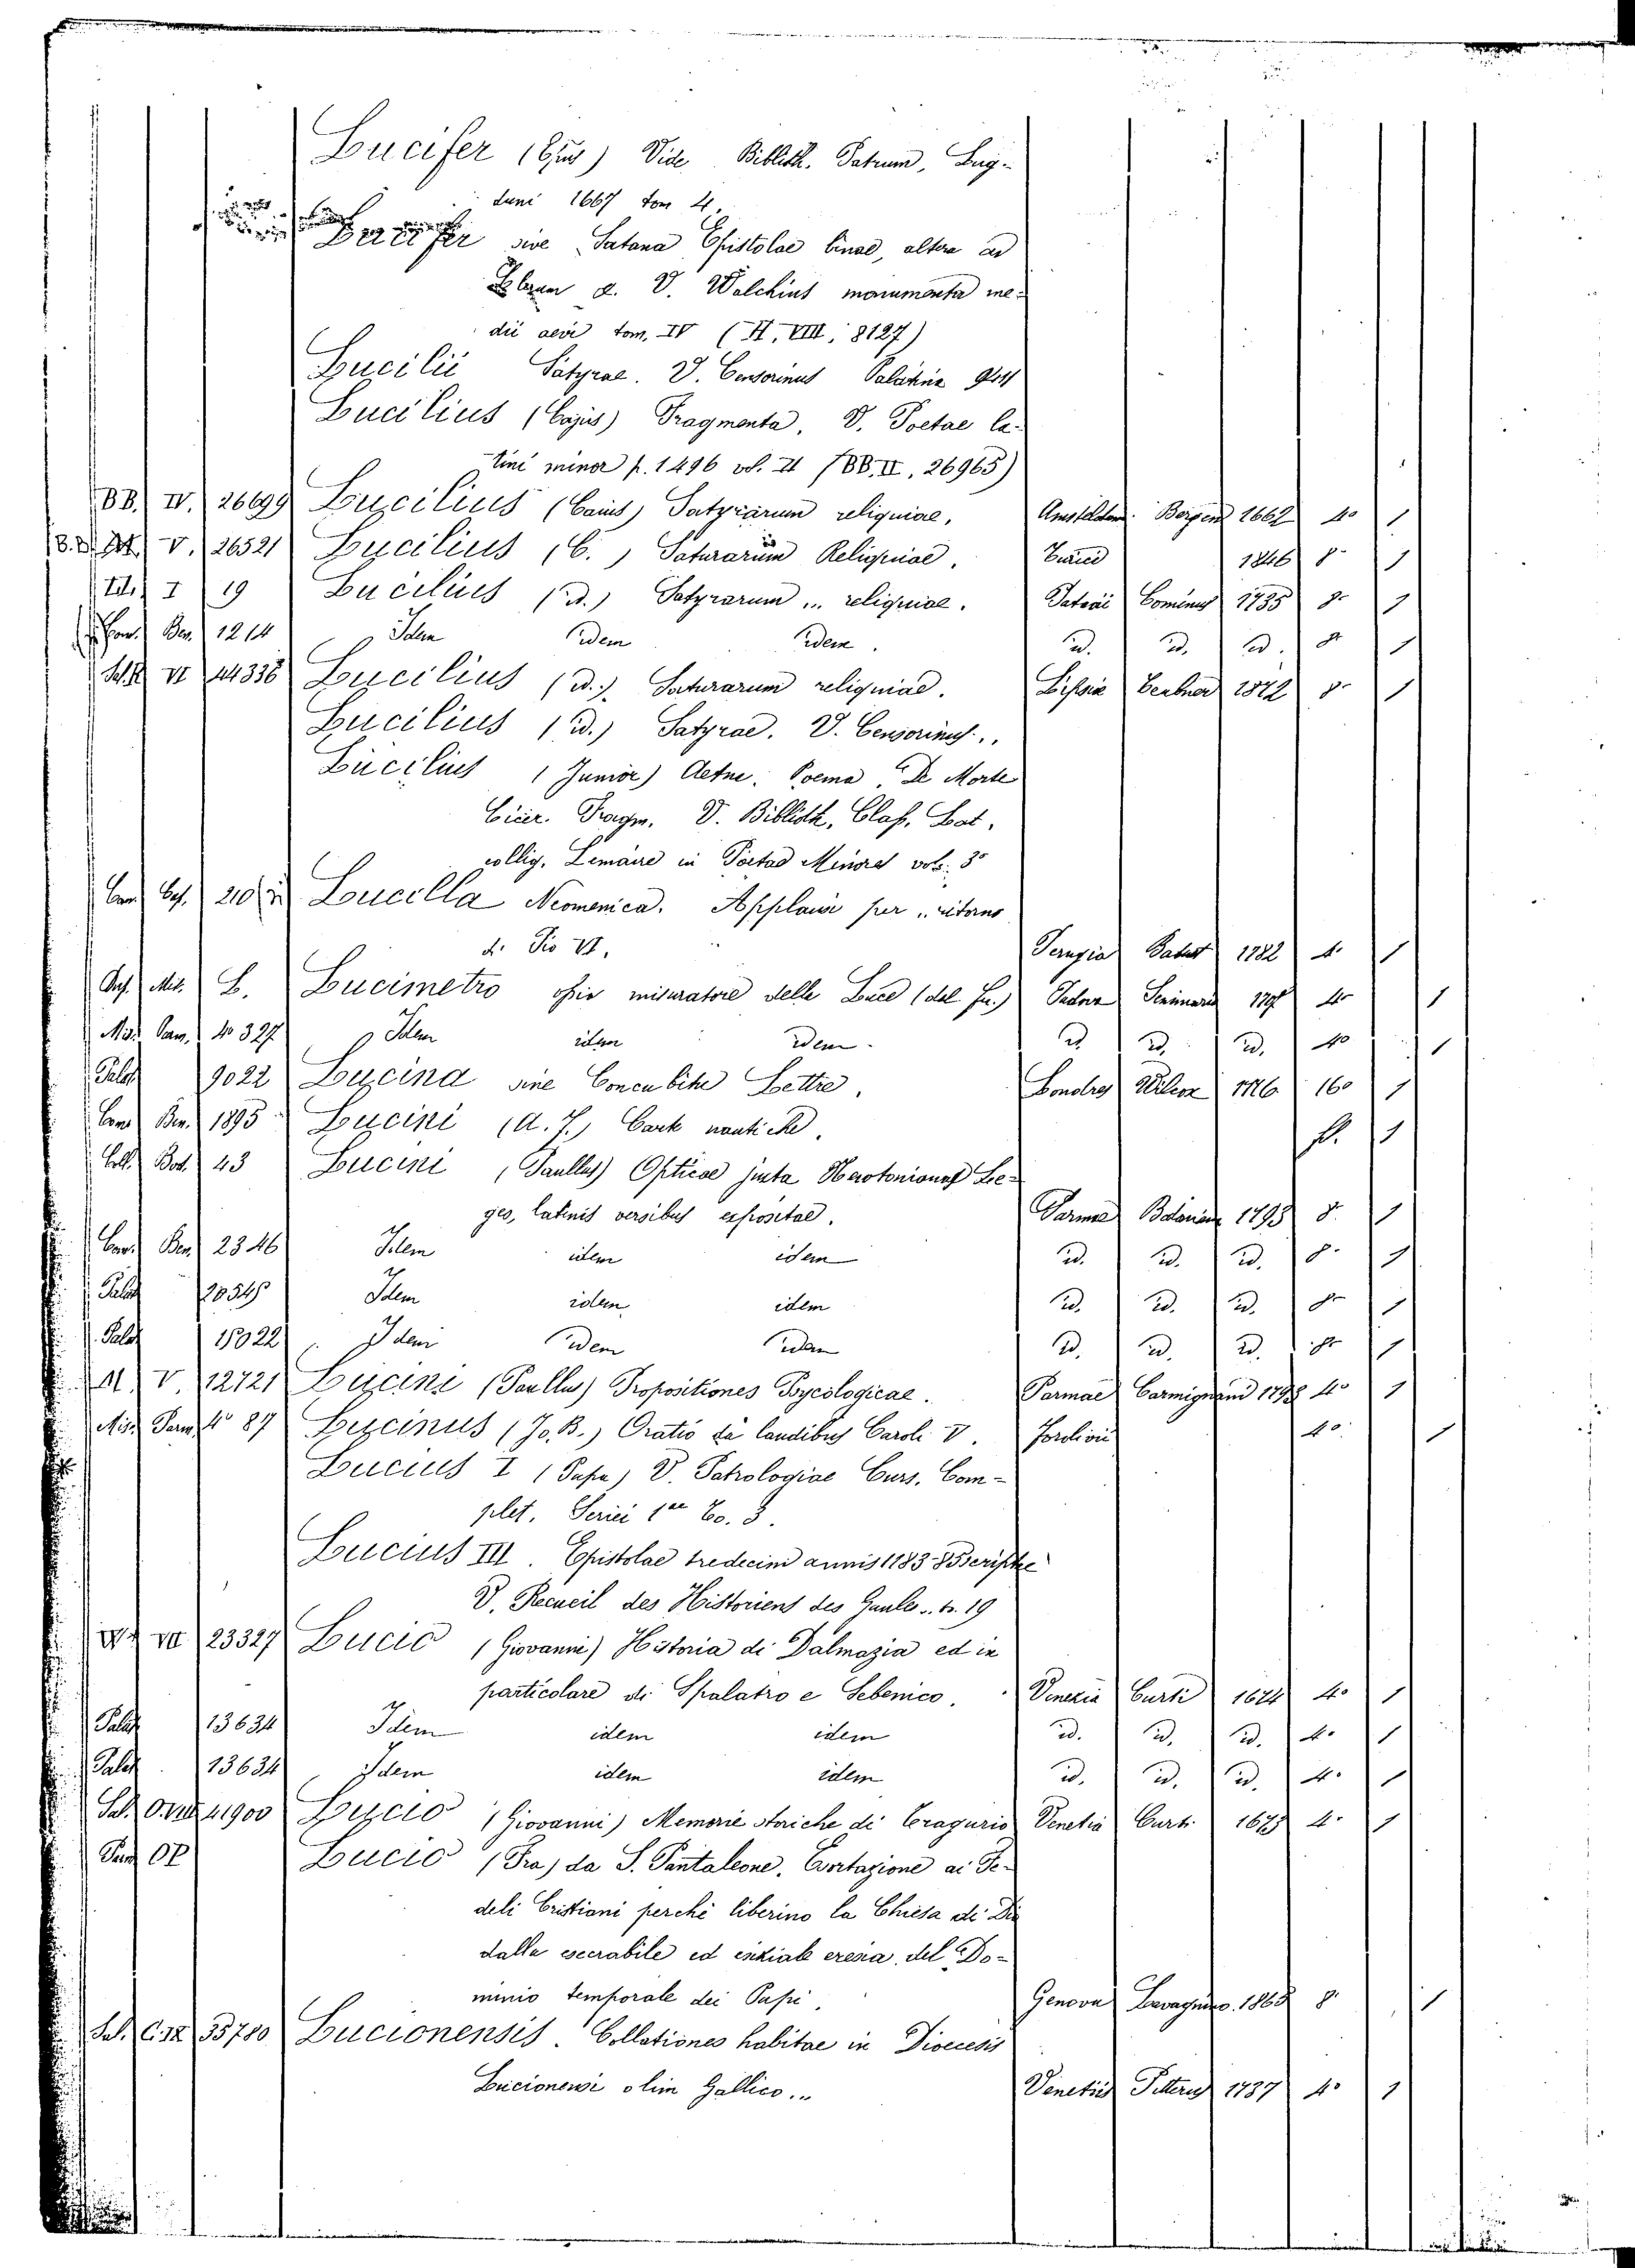 Lucifer (Ejus) Vide Biblioth. Patrum, Lug-
duni 1667 tom 4.
Lucifer sive Satana Epistolae binae, altera ad
V. Walchius monumenta me-
dii aevi tom. IV (H. VIII. 8127)
Lucilii Satyrae. V. Censorinus Palatina
Lucilius (Cajus) Fragmenta, V. Poetae la-
tini minor p. 1496 vol. II (BB. II, 26965)
BB. IV. 26699 Lucilius (Caius) Satyrarum reliquiae, 1662 4o 1
V. 26521 Lucilius (C.) Saturarum Reliquiae. Turici 1846 8o 1
I 19 Lucilius (id.) Satyrarum ... reliquiae. Patavi Cominus 1735 8o 1
Ben. 1214 Idem idem idem. id. id. id. 8o 1
VI 44336 Lucilius (id.) Saturarum reliquiae. Lipsia Teubner 1872 8o 1
Lucilius (id.) Satyrae. V. Censorinus..
Lucilius (Junior) Aetne. Poema. De Morte
Cicer. Fragm. V. Biblioth. Class. Lat.
collig. Lemaire in Poetas Minores vol. 3o
210 Lucilla Neomenica. Applausi per .. ritorno
di Pio VI. Perugia 1782 4o 1
Mil. B. Lucimetro ossia misuratore della Luce (del Fu.) Padova Seminario 4o 1
Mis. Parm. 4o 327 Idem idem idem. id. id. id. 4o 1
Palat 9022 Lucina sine Concubitu Lettre. Londres 16o 1
Ben. 1895 Lucini (A. F.) Carte nautiche. fl. 1
Coll. Bod. 43 Lucini (Paullus) Opticae juxta Newtonianas Le-
ges, latinis versibus expositae. Parmae 1793 8. 1
Ben. 2346 Idem idem idem id. id. id. 8o 1
Palat Idem idem idem id. id. id. 8o 1
Palat 15022 Idem idem idem id. id. id. 8o 1
V 12121 Lucini (Paullus) Propositiones Psycologicae. Parmae Carmignani 4o 1
Mis. Parm. 4o 87 Lucinus (Jo. B.) Oratio de laudibus Caroli V. Forolivii 4o. 1
Lucius I (Papa) V. Patrologiae Curs. Com-
plet. Seriei 1ae To. 3.
Lucius III. Epistolae tredecim annis 1183-85 scriptae
V. Recueil des Historiens des Gaules .. t. 19
VII 23327 Lucio (Giovanni) Historia di Dalmazia ed in
particolare di Spalatro e Sebenico. Venezia Curti 1674 4o 1
Palat 13634 Idem idem idem id. id. id. 4o 1
Palat 13634 Idem idem idem id. id. id. 4o 1
41900 Lucio (Giovanni) Memorie storiche di Tragurio Venetia Curti 1673 4o 1
Lucio (Fra) da S. Pantaleone. Esortazione ai Fe-
deli Cristiani perchè liberino la Chiesa di Dio
dalla esecrabile ed esiziale eresia del Do-
minio temporale dei Papi. Genova Lavagnino. 8o 1
Sal. 35780 Lucionensis. Collationes habitae in Diocesis
Lucionensi olim Gallico... Venetiis Pitteri 1737 4o 1